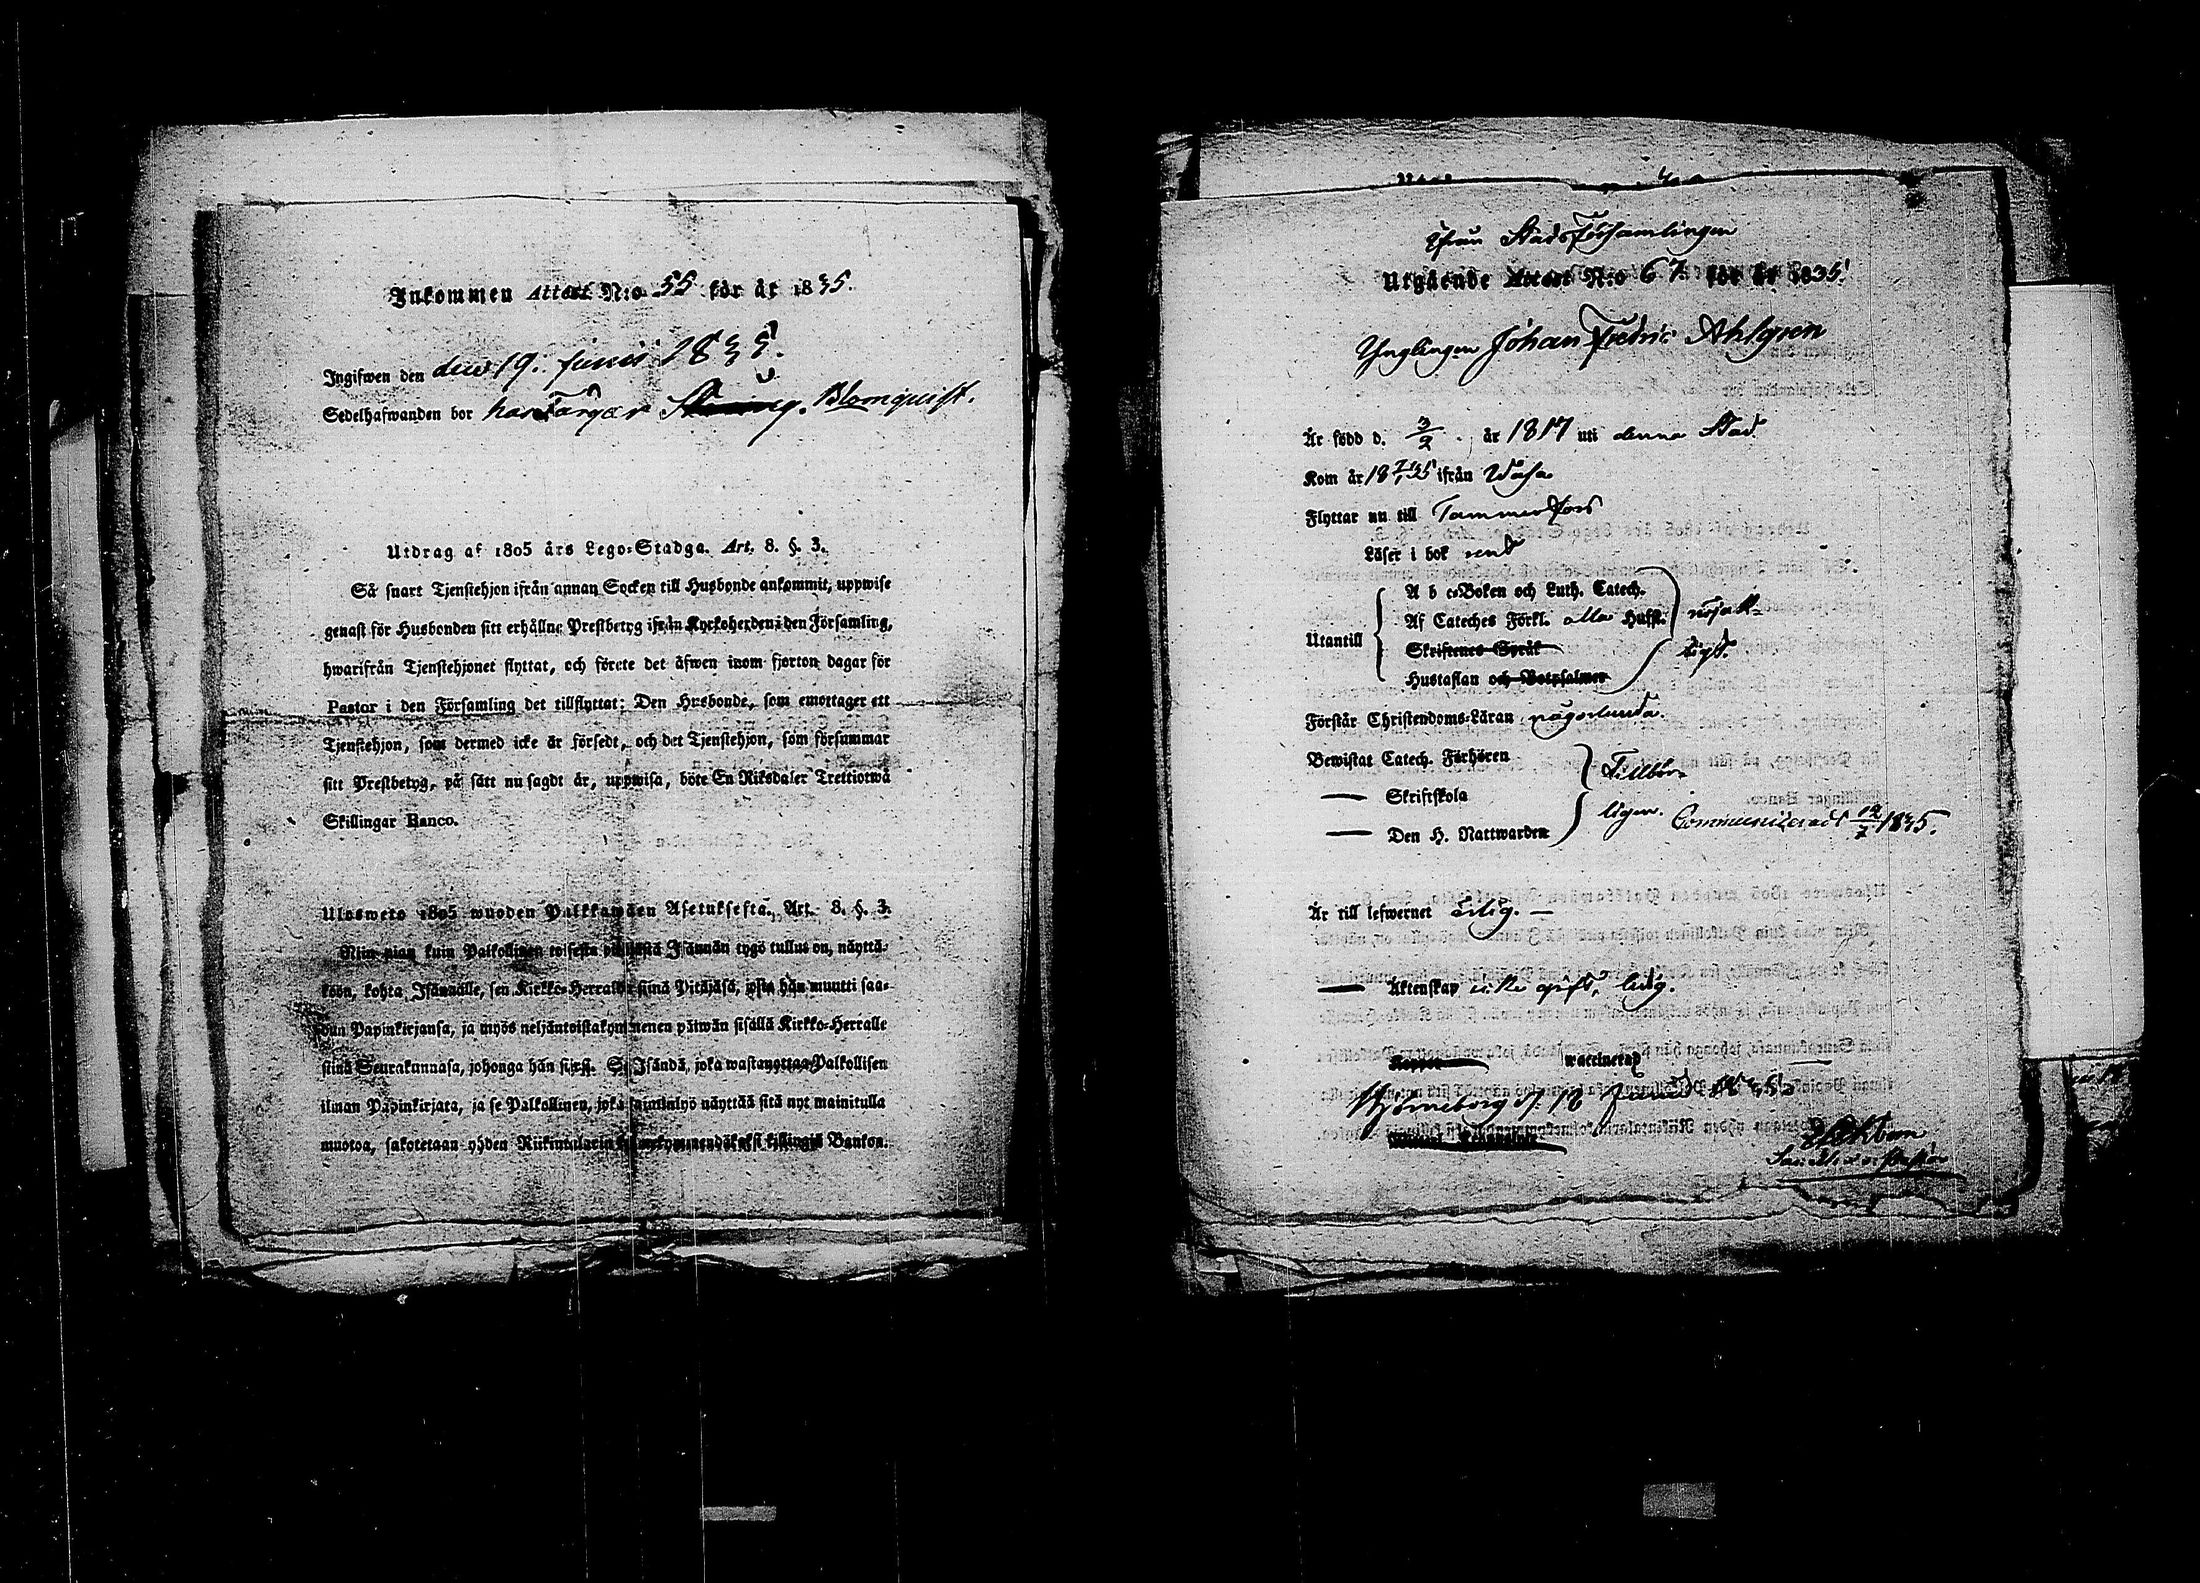 Inkommen Attest N:o 55 för år 1835.
Ingifwen den den 19. Junii 1835.
Sedelhafwanden bor hos Färgar Blomquist.
Utdrag af 1805 års Lego-Stadga. Art. 8. §. 3.
Så snart Tjenstehjon ifrån annan Socken till Husbonde ankommit, uppwise
genast för Husbonden sitt erhållne Prestbetyg ifrån Kyrkoherden i den Församling,
hwarifrån Tjenstehjonet flyttat, och förete det äfwen inom fjorton dagar för
Pastor i den Församling det tillflyttat; Den Husbonde, som emottager ett
Tjenstehjon, som dermed icke är försedt, och det Tjenstehjon, som försummar
sitt Prestbetyg, på sätt nu sagdt är, uppwisa, böte En Riksdaler Trettiotwå
Skillingar Banco.
Ulosweto 1805 wuoden Palkkawäen Asetuksesta, Art. 8. §. 3.
Niin pian kuin Palkollinen toisesta pitäjästä Isännän tygö tullus on, näyttä-
köön, kohta Isännälle, sen Kirkko-Herralda siinä Pitäjäsä, josta hän muutti saa-
dun Papinkirjansa, ja myös neljäntoistakymmenen päiwän sisällä Kirkko-Herralle
siinä Seurakunnasa, johonga hän siirsi. Se Isändä, joka wastanottaa Palkollisen
ilman Papinkirjata, ja se Palkollinen, joka laiminlyö näyttää sitä nyt mainitulla
muotoa, sakotetaan yhden Riikintalarin kahdenneljättäkymmendä killingiä Bankon.
Ifrån Stadsförsamlingen
Utgående Attest N:o 67 för år 1835.
Ynglingen Johan Fredric Ahlgren
Är född d. 3/2 . år 1817 uti denna Stad
Kom år 18 35 ifrån Wasa
Flyttar nu till Tammerfors
Läser i bok rent
A b c-Boken och Luth. Catech.
Af Cateches Förkl. alla Hufst. nöjakt-
Utantill
Skriftenes Språk ligt.
Hustaflan och Botpsalmer
Förstår Christendoms-Läran någorlunda.
Bewistat Catech. Förhören
Tillbör-
— Skriftskola
— Den H. Nattwarden ligen. Communiceradt 12/7 1835.
Är till lefwernet ärlig. —
— Äktenskap icke gift, ledig.
Koppor waccinerad —
Björneborg d. 18 Junii 1835.